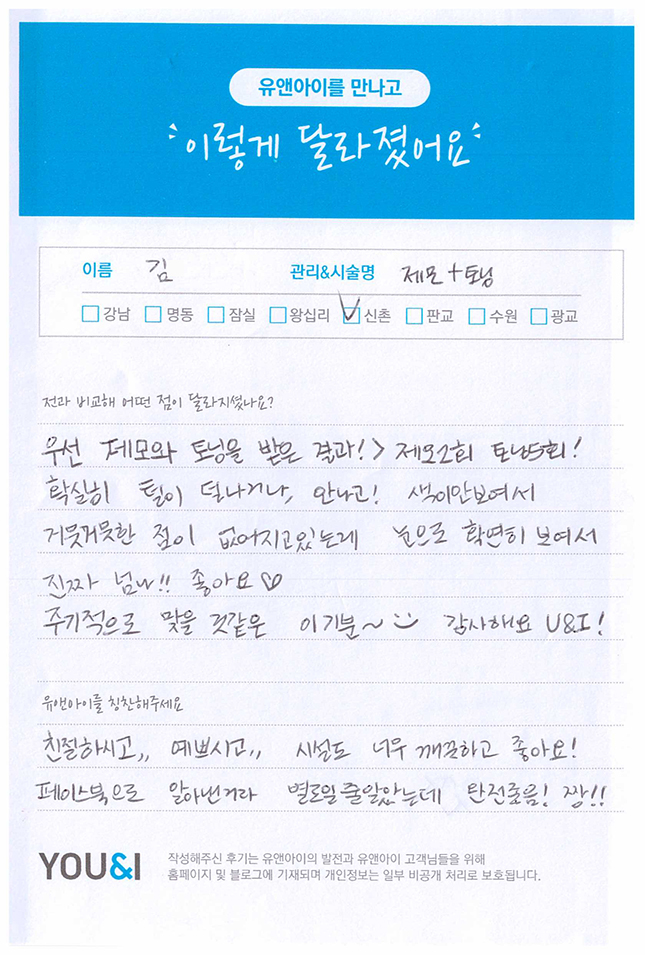 유앤아이를 만나고
이렇게 달라졌어요
이름 김 관리&시술명 제모+토닝
강남 명동 잠실 왕십리 신촌 판교 수원 광교
전과 비교해 어떤 점이 달라지셨나요?
우선 제모와 토닝을 받은 결과!> 제모2회 토닝5회!
확실히 털이 덜나거나, 안나고! 색이안보여서
거뭇거뭇한 점이 없어지고있는게 눈으로 확연히 보여서
진짜 넘나!! 좋아요♡
주기적으로 맞을 것같은 이기분~ 감사해요 U&I!
유앤아이를 칭찬해주세요
친절하시고,, 예쁘시고,, 시설도 너무 깨끗하고 좋아요!
페이스북으로 알아낸거라 별로일줄알았는데 완전좋음! 짱!!
YOU&I
작성해주신 후기는 유앤아이의 발전과 유앤아이 고객님들을 위해
홈페이지 및 블로그에 기재되며 개인정보는 일부 비공개 처리로 보호됩니다.